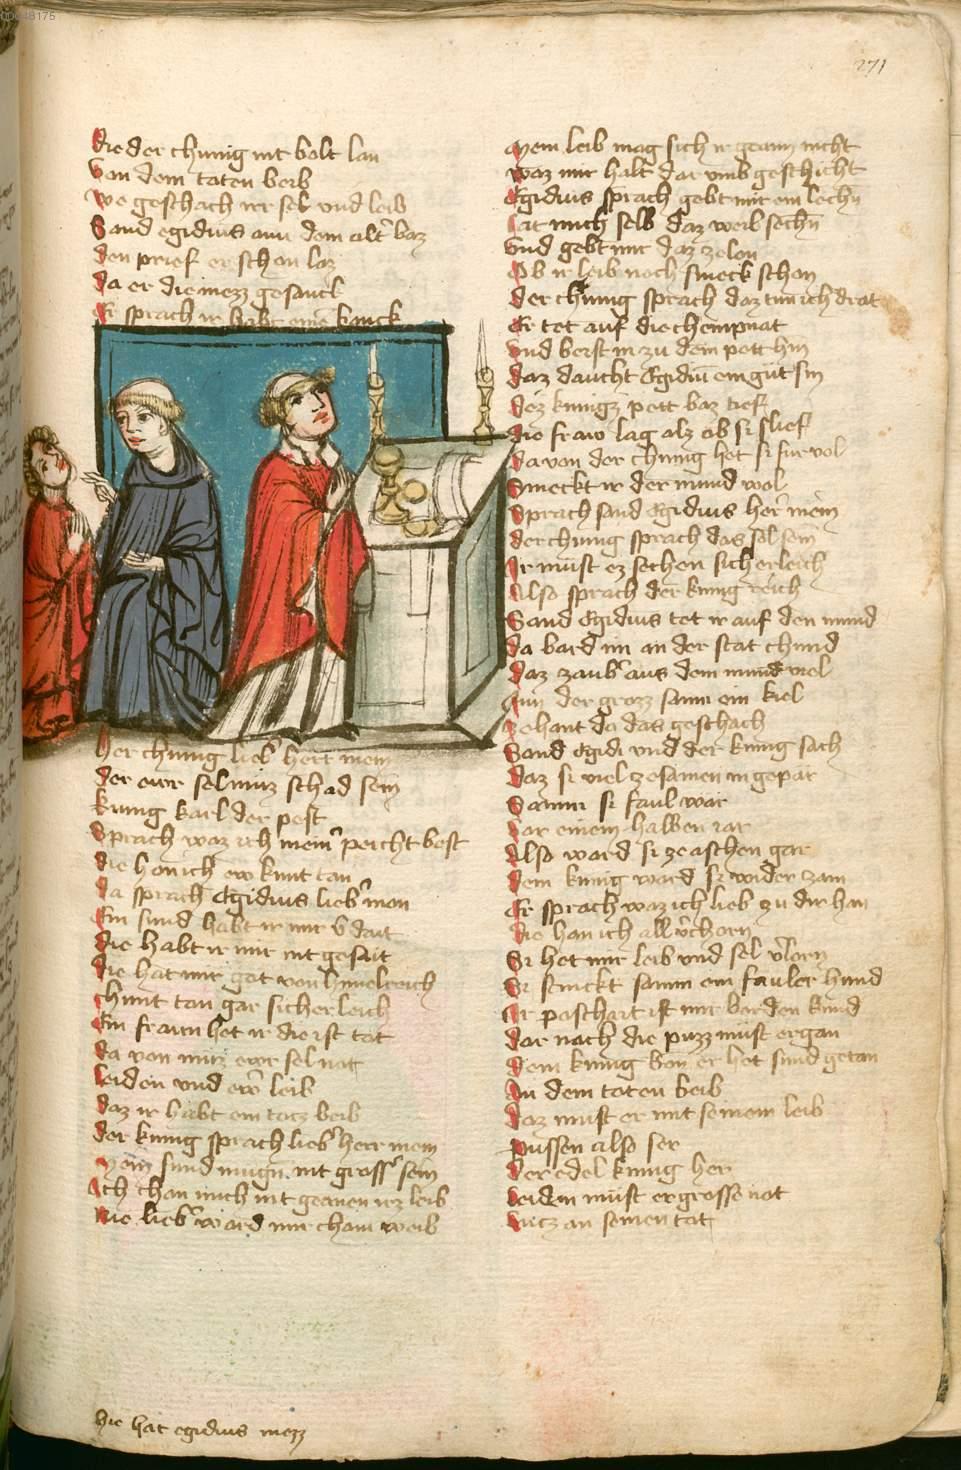 00048175
271
die der chunig nit bolt lan
von dem taten beib
we geschach irr sel vnd leib
Sand egidius auu dem alt baz
den prief er schon laz
da er die mezz gesanck
Er sprach ir habt eine kranck
her chunig lieb herr mein
der ewr sel muz schad sein
kunig karl der pest
Sprach waz ich meinr peicht best
die han ich ew kunt tan
da sprach Egidius lieb man
Ein sund habt ir mir v dait
die habt ir mir nit gesait
die hat mir got von himelreich
chunt tan gar sicherleich
Ein frawn het ir die ist tot
da von muz ewr sel not
leiden vnd ewr leib
daz ir habt ein tatz beib
der kunig sprach lieb herr mein
mein sund mugn nit grosser sein
Ich chan mich nit geanen irz leib
Nie lieb ward mir chain weib
mein leib mag sich ir geann nicht
waz mir halt dar vmb geschicht
Egidius sprach gebt mir ein lechn
lat mich selb daz weib sechn
vnd gebt mir daz zelon
Ob ir leib noch smeck schon
der chunig sprach daz tun ich drat
Er tet auf die chempnat
vnd berst in zu dem pett hin
daz daucht Egidiu ein gut sin
dez kunigz pett baz tief
die fraw lag alz ob si slief
da von der chunig het si fur vol
Smeckt ir der mund wol
Sprach sand Egidius her mein
der chunig sprach das sol sein
Ir must ez sechen sicherleich
Also sprach der kunig reich
Sand Egidius tet ir auf den mund
da bard im an der stat chund
daz zaub aus dem mund viel
Auu der grozz samm ein kiel
zehant do das geschach
Sand Egidi vnd der kunig sach
daz si viel zesamen in gepar
Samm si faul war
vor einem halben iar
Also ward si ze aschen gar
dem kunig ward si wider zam
Er sprach waz ich lieb zu dir han
die han ich all vchorn
Si het mir leib vnd sel vlorn
Si stinckt samm ein fauler hund
Ir poschait ist mir borden kund
dar nach die puzz must ergan
dem kunig bon er het sund getan
An dem taten beib
daz must er mit seinem leib
pussen also ser
der edel kunig her
leiden must er grosse not
vncz an seinen tot
hie hat egidius mezz